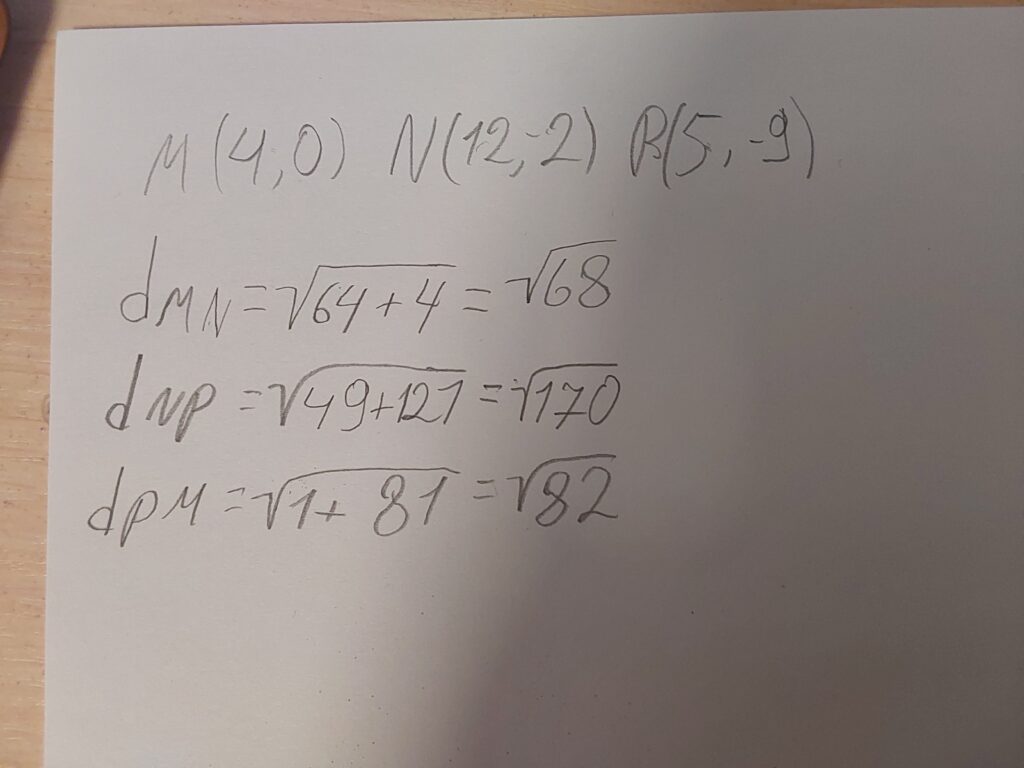 M(4,0) N(12,-2) P(5,-9)
dMN = √64+4 = √68
dNP = √49+121 = √170
dPM = √1+81 = √82